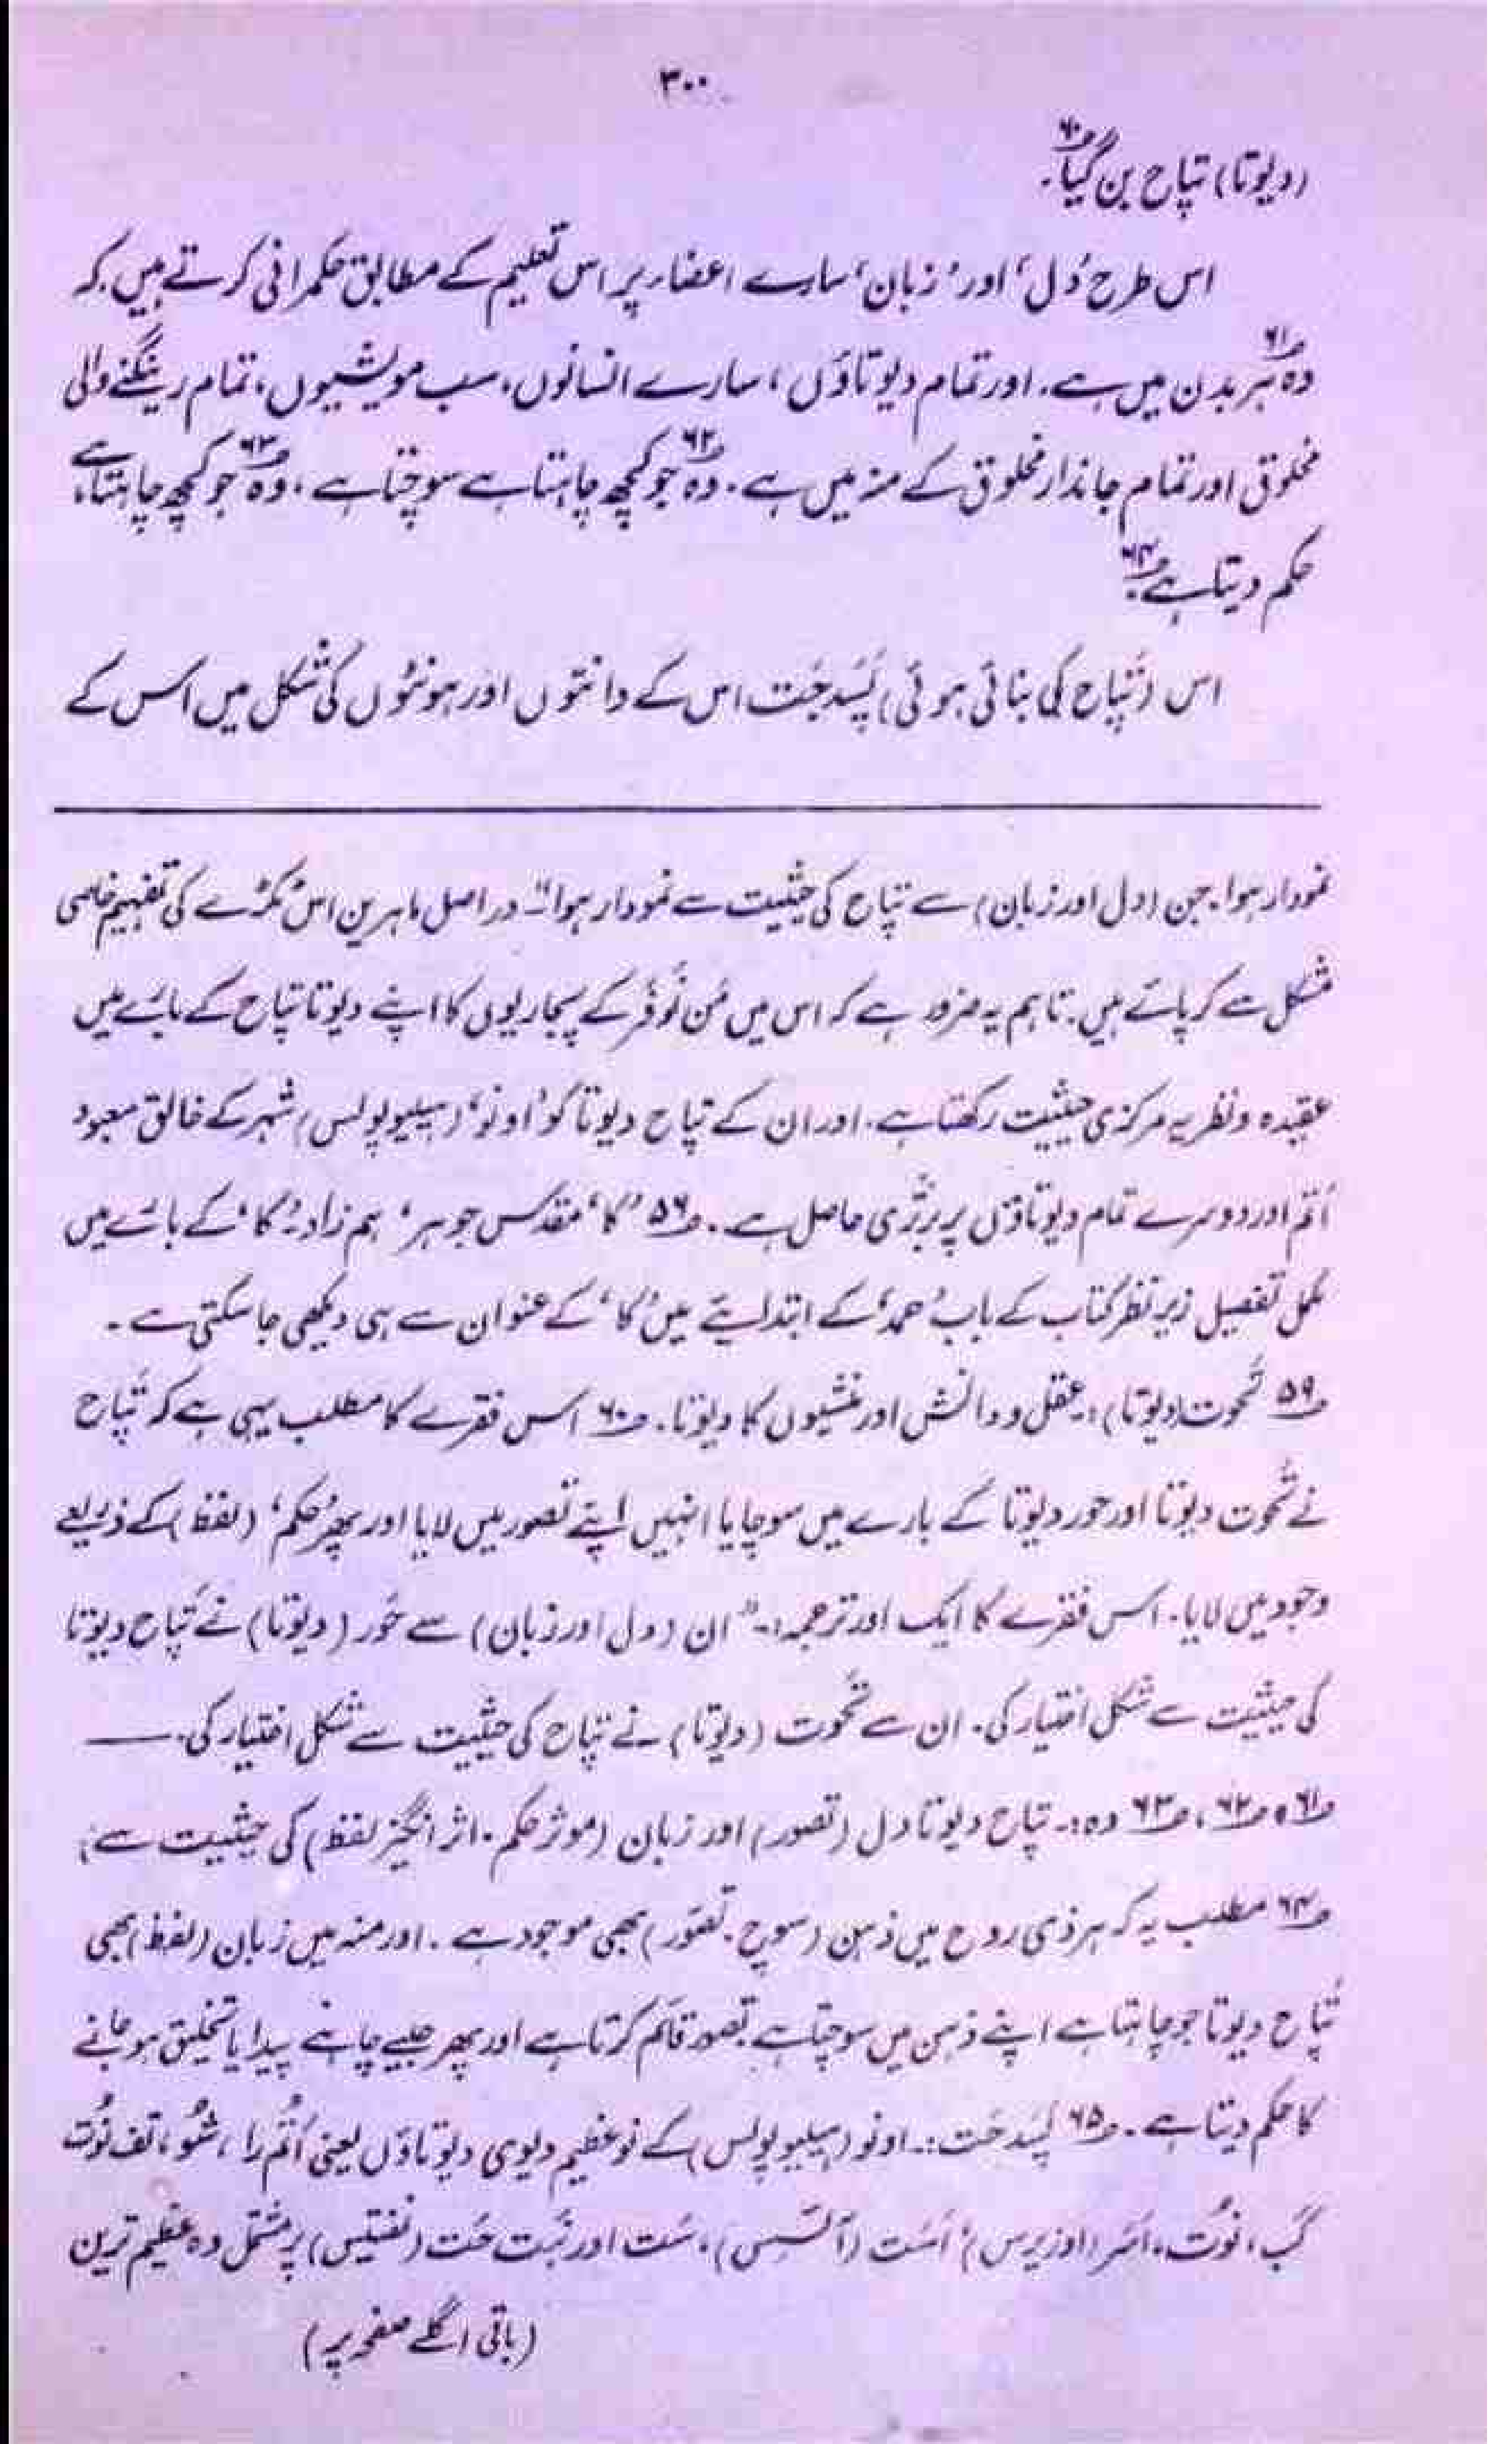 ۳۰۰
(دیوتا) تپاح بن گیا۶۰۔
اس طرح 'دل' اور 'زبان' سارے اعضاء پر اس تعلیم کے مطابق حکمرانی کرتے ہیں کہ
وہ۶۱ ہر بدن میں ہے۔ اور تمام دیوتاؤں، سارے انسانوں، سب مویشیوں، تمام رینگنے والی
مخلوق اور تمام جاندار مخلوق کے منہ میں ہے۔ وہ۶۲ جو کچھ چاہتا ہے سوچتا ہے، وہ۶۳ جو کچھ چاہتا ہے
حکم دیتا ہے۶۴۔
اس (تپاح کی بنائی ہوئی) پَسَدجَت اس کے دانتوں اور ہونٹوں کی شکل میں اس کے
نمودار ہوا۔ جن (دل اور زبان) سے تپاح کی حیثیت سے نمودار ہوا"۔ دراصل ماہرین اس ٹکڑے کی تفہیم خاصی
مشکل سے کر پائے ہیں۔ تاہم یہ ضرور ہے کہ اس میں مَن نُوفَر کے پجاریوں کا اپنے دیوتا تپاح کے بارے میں
عقیدہ و نظریہ مرکزی حیثیت رکھتا ہے۔ اور ان کے تپاح دیوتا کو 'اونو' (ہیلیوپولس) شہر کے خالق معبود
اَتُم اور دوسرے تمام دیوتاؤں پر برتری حاصل ہے۔ ؎۵۶ 'کا' مقدس جوہر' ہم زاد۔ 'کا' کے بارے میں
مکمل تفصیل زیر نظر کتاب کے باب 'حمد' کے ابتدائیے میں 'کا' کے عنوان سے ہی دیکھی جا سکتی ہے۔
؎۵۹ تحوت (دیوتا):۔ عقل و دانش اور منشیوں کا دیوتا۔ ؎۶۰ اس فقرے کا مطلب یہی ہے کہ تپاح
نے تحوت دیوتا اور حور دیوتا کے بارے میں سوچا یا انہیں اپنے تصور میں لایا اور پھر 'حکم' (لفظ) کے ذریعے
وجود میں لایا۔ اس فقرے کا ایک اور ترجمہ:۔ "ان (دل اور زبان) سے حُور (دیوتا) نے تپاح دیوتا
کی حیثیت سے شکل اختیار کی۔ ان سے تحوت (دیوتا) نے تپاح کی حیثیت سے شکل اختیار کی۔ ——
؎۶۱، ؎۶۲، ؎۶۳ وہ:۔ تپاح دیوتا دل (تصور) اور زبان (موثر حکم۔ اثر انگیز لفظ) کی حیثیت سے؛
؎۶۴ مطلب یہ کہ ہر ذی روح میں ذہن (سوچ۔ تصوّر) بھی موجود ہے۔ اور منہ میں زبان (لفظ) بھی
تپاح دیوتا جو چاہتا ہے اپنے ذہن میں سوچتا ہے تصور قائم کرتا ہے اور پھر جیسے چاہے پیدا یا تخلیق ہو جانے
کا حکم دیتا ہے۔ ؎۶۵ پَسَدجَت:۔ اونو (ہیلیوپولس) کے نو عظیم دیوی دیوتاؤں یعنی اَتُم را، شُو، تف نُوت
گَب، نُوت، اَسَر (اوزیرس) اَسَت (آئسس)، سَت اور نَبت حَت (نفتیس) پر مشتمل وہ عظیم ترین
(باقی اگلے صفحہ پر)